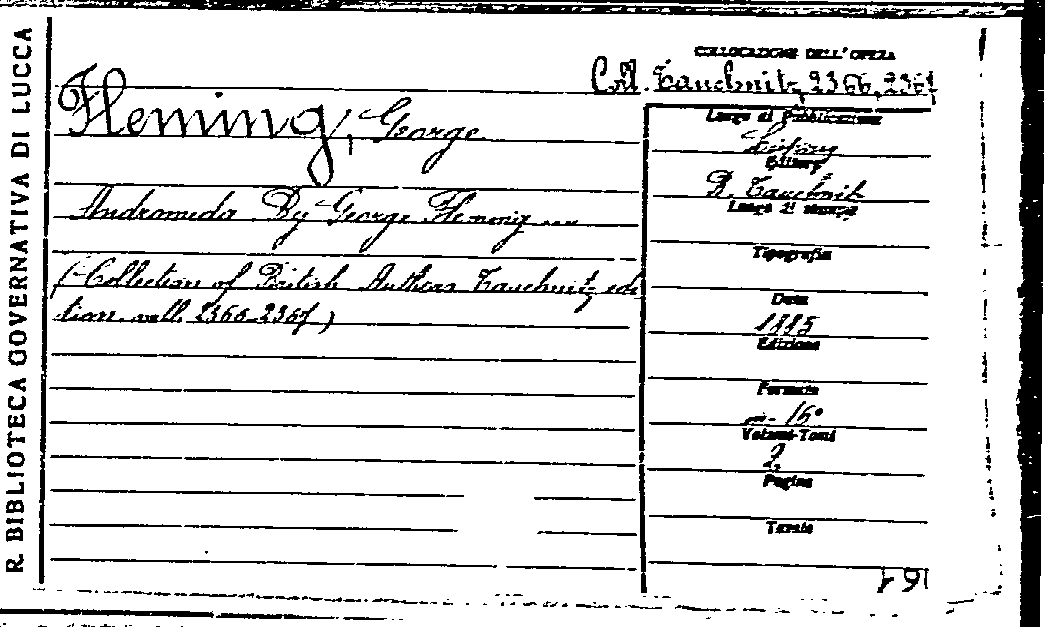 R. BIBLIOTECA GOVERNATIVA DI LUCCA
COLLOCAZIONE DELL'OPERA
Coll. Tauchnitz, 2366, 2367
Fleming, George
Andromeda By George Fleming ....
(-Collection of British Authors Tauchnitz edi
tion. voll. 2366-2367)
Luogo di Pubblicazione
Leipzig
Editore
B. Tauchnitz
Luogo di stampa
Tipografia
Data
1885
Edizione
Formato
in-16°
Volumi-Tomi
2
Pagine
Tavole